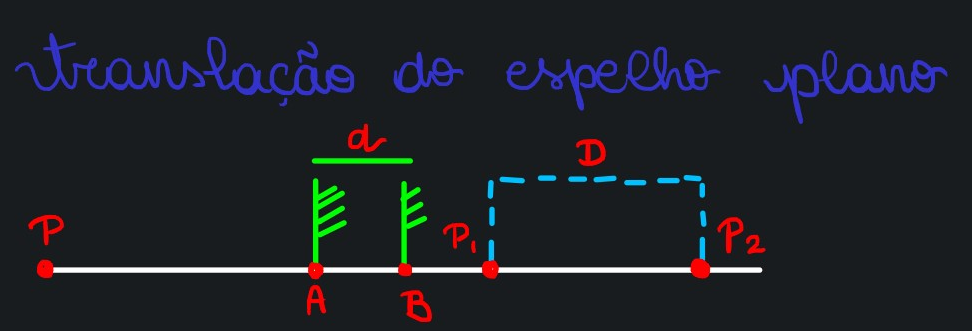 translação do espelho plano
d
D
P
P₁
P₂
A
B